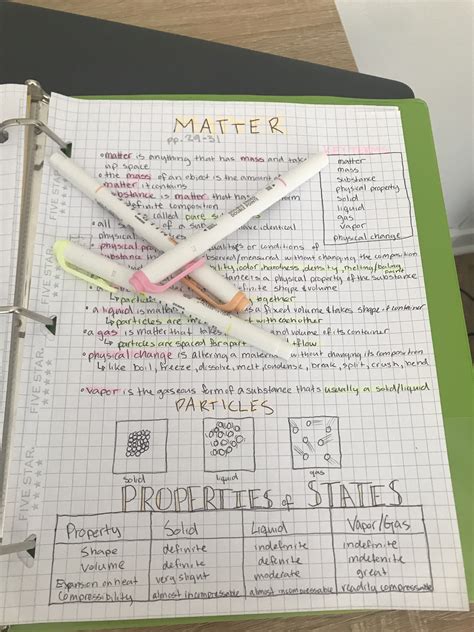 MATTER
pp. 29-31
matter
mass
substance
physical property
solid
liquid
gas
vapor
physical change
• matter is anything that has mass and take
up space
• the mass of an object is the amount of
matter it contains
bstance is matter that has
definite composition
called pure
• all s of a su have identical
physical
• physical prop or conditions of
substance observed/measured without changing the composition
bility, odor, hardness, density, melting/boiling point
is a physical property of the substance
definite shape & volume
↳ particles together
• a liquid is matter a fixed volume & takes shape of container
↳ particles are in with each other
• a gas is matter that takes and volume of its container
↳ particles are spaced far apart flow
• physical change is altering a material without changing its composition
↳ like boil, freeze, dissolve, melt, condense, break, split, crush, bend
• vapor is the gaseous form of a substance that's usually a solid/liquid
PARTICLES
solid liquid gas
PROPERTIES of STATES
Property Solid Liquid Vapor/Gas
Shape definite indefinite indefinite
Volume definite definite indefinite
Expansion on heat very slight moderate great
Compressibility almost incompressable almost incompressable readily compressable
FIVE STAR.
FIVE STAR.
FIVE STAR.